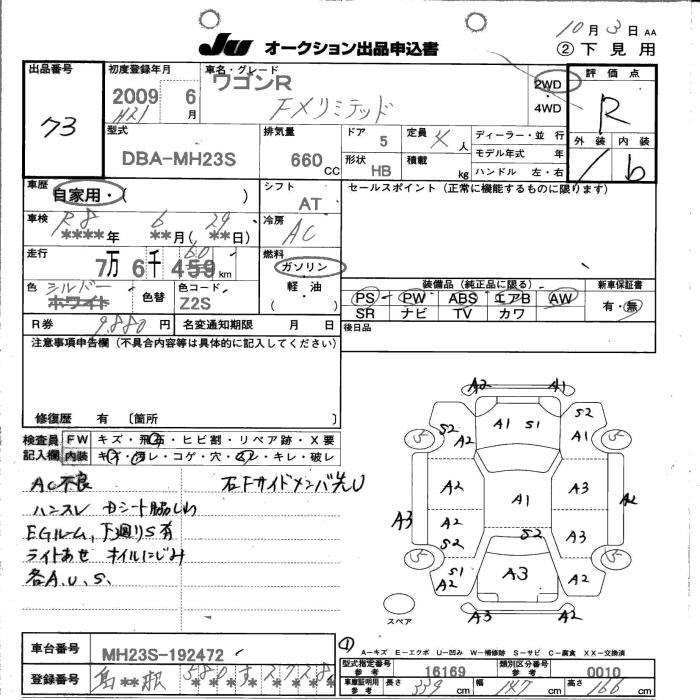 10月3日 AA
JU オークション出品申込書
② 下見用
出品番号
73
初度登録年月
2009 6月
H21
車名・グレード
ワゴンR
FXリミテッド
2WD
4WD
評価点
R
外装 内装
b
型式
DBA-MH23S
排気量
660 CC
ドア 5
形状 HB
定員 4人
積載 kg
ディーラー・並行
モデル年式 年
ハンドル 左・右
車歴
自家用・( )
シフト
AT
セールスポイント (正常に機能するものに限ります)
車検
R8 6 29
****年 **月(**日)
冷房
AC
走行
7万6千459km
60
燃料
ガソリン
軽油
( )
色
シルバー
ホワイト
色替
色コード
Z2S
装備品 (純正品に限る)
PS PW ABS エアB AW
SR ナビ TV カワ
新車保証書
有・無
R券 9,880円
名変通知期限 月 日
後日品
注意事項申告欄 (不具合内容等は具体的に記入してください)
修復歴 有 〔箇所
検査員記入欄
FW キズ・飛石・ヒビ割・リペア跡・X要
内装 キズ・ヨゴレ・コゲ・穴・・キレ・破レ
AC不良
右Fサイドメンバ先U
ハンスレ シート脇しわ
EGルーム、下廻りS有
ライトあせ オイルにじみ
各A.U.S.
A2 A1
S2 A2 A1 S1 S2 A1
A2 A1 A3
A3 A2 S2 A3 A2
S2
S1 A2 A3 A2
A3 A2
スペア
①
A−キズ E−エクボ U−凹み W−補修跡 S−サビ C−腐食 XX−交換済
車台番号
MH23S-192472
型式指定番号 参考
16169
類別区分番号 参考
0010
登録番号
車輌証明用 参考
長さ 339cm
幅 147cm
高さ 166cm